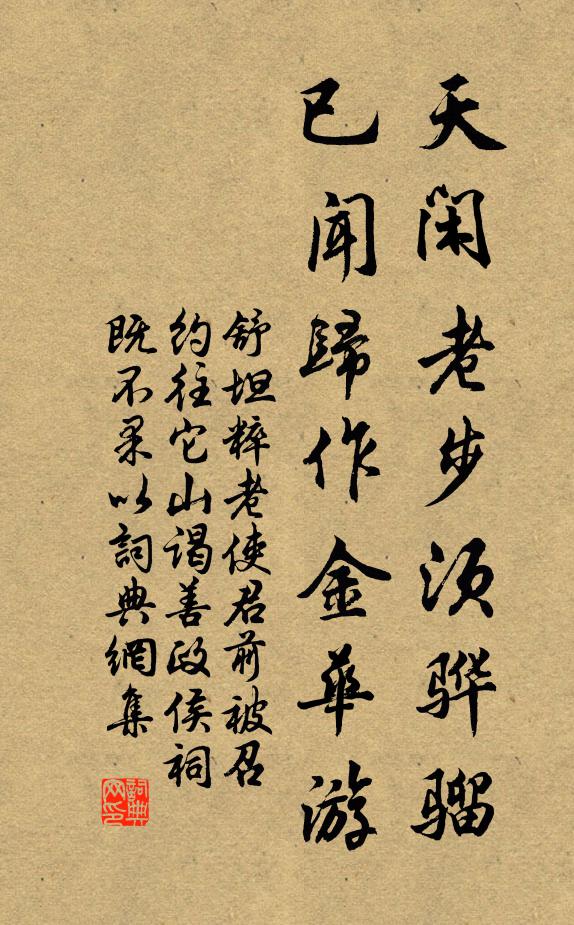 天闲老步须骅骝
已闻歸作金華游
舒坦粹老使君前被召
约往它山谒善政侯祠
既不果以詞典網集
詞典网印